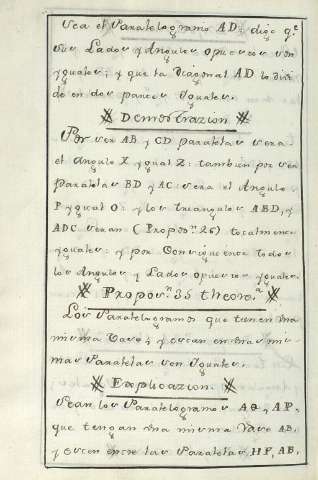 Sea el Paralelogramo AD; digo q.e
sus Lados y Angulos opuestos son
yguales; y que la Diagonal AD lo divi
de en dos partes Yguales.
Demostrazion
Por ser AB y CD paralelas sera
el Angulo X ygual Z: tambien por ser
paralelas BD y AC sera el Angulo
P ygual O: y los triangulos ABD, y
ADC seran (Propos.n 26) totalmente
yguales: y por Consiguiente todos
los Angulos y Lados opuestos yguales.
Propos.n 35 theore.a
Los Paralelogramos que tienen una
misma Vase, y estan entre unas mis
mas Paralelas son Yguales.
Explicazion.
Sean los Paralelogramos AQ, AP,
que tengan una misma Vase AB,
y esten entre las Paralelas, HF, AB,